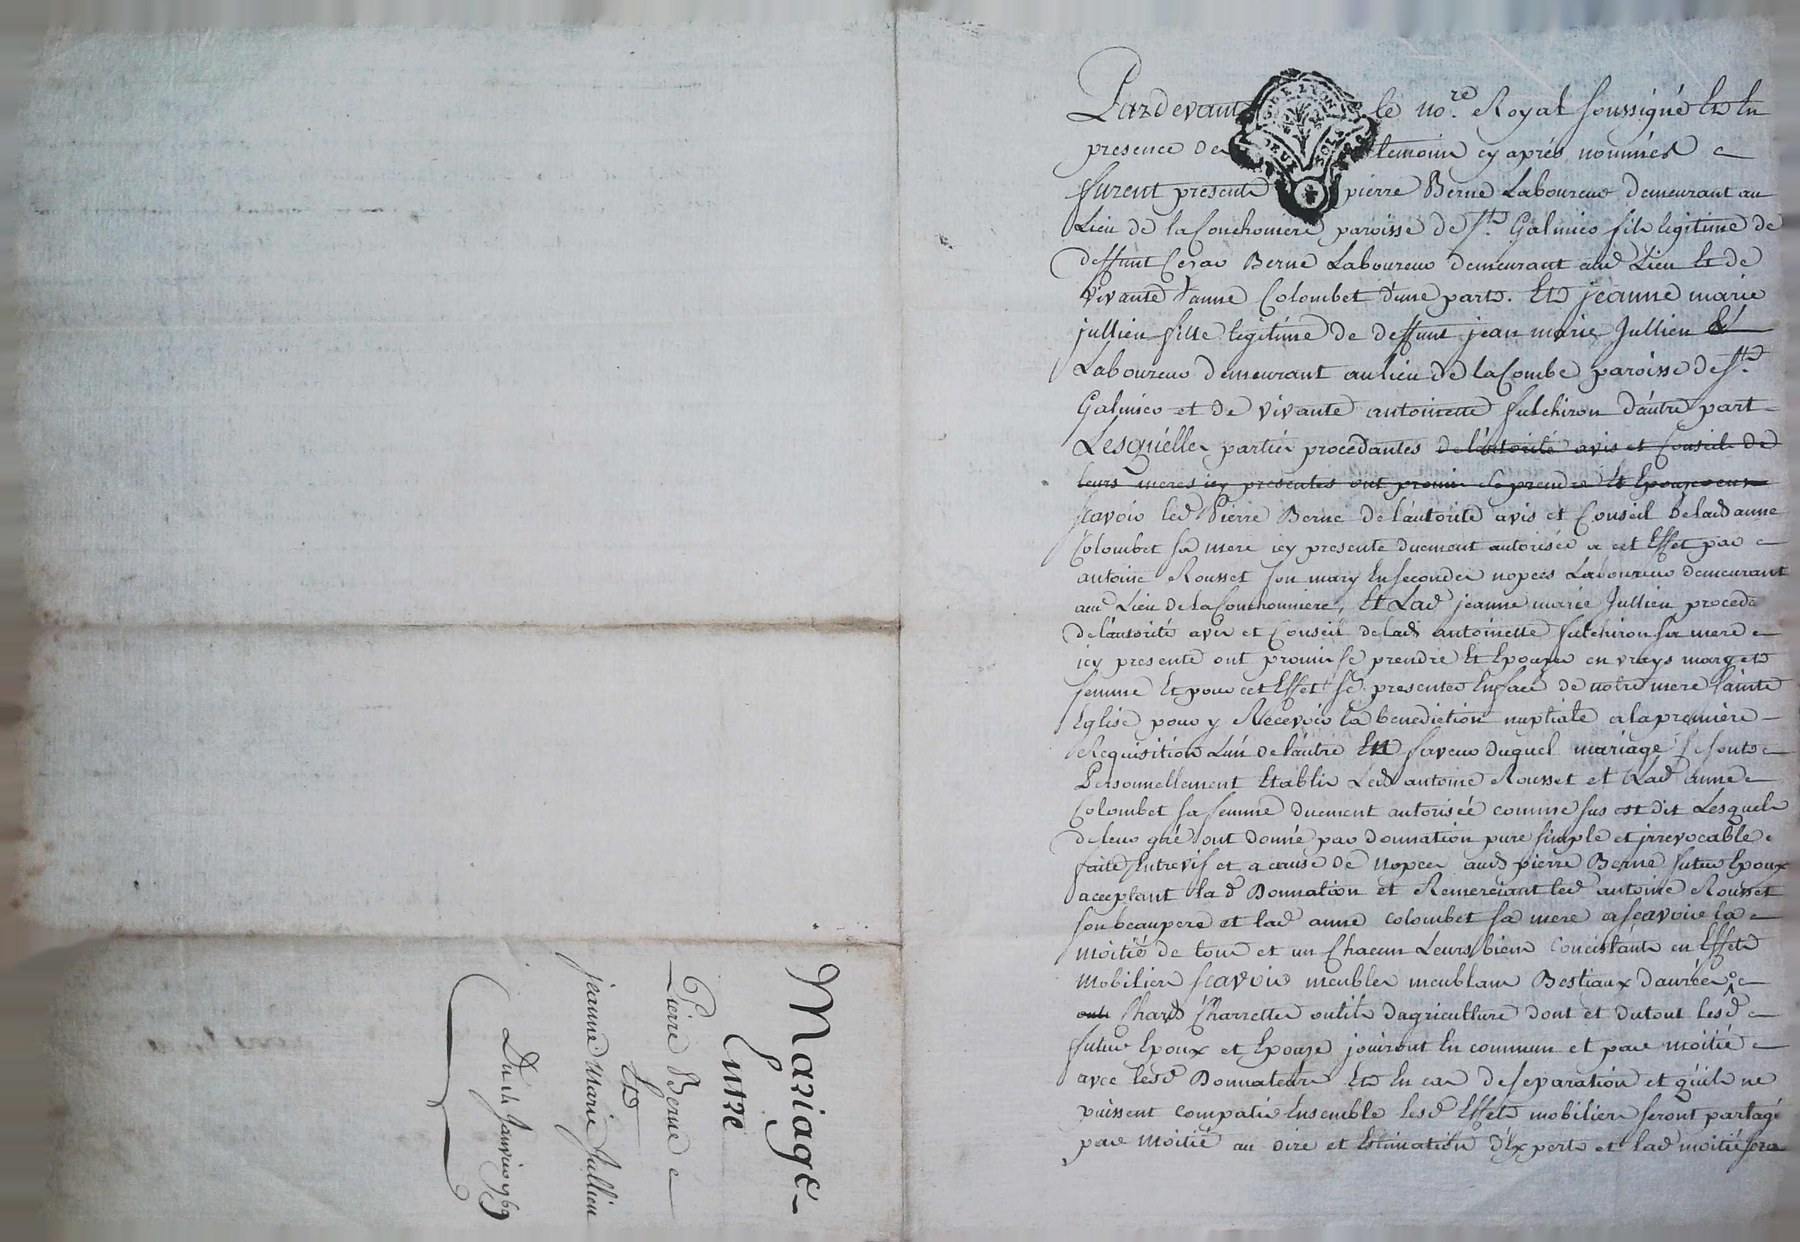 Pardevant le no.re Royal soussigné Et En
presence des temoins cy aprés nommés
furent presents pierre Berne Laboureur demeurant au
Lieu de la Conchoniere paroisse de St. Galmier fils legitime de
deffunt Cezar Berne Laboureur demeurant aud Lieu Et de
vivante anne Colombet d'une part. Et jeanne marie
jullien fille legitime de deffunt jean marie Jullien
Laboureur demeurant au lieu de la Combe paroisse de St.
Galmier et de vivante antoinette fulchiron d'autre part
Lesquelles parties procedantes de l'autorité avis et Conseils de
leurs meres icy presentes ont promis se prendre Et Epouser en
scavoir led Pierre Berne de l'autorité avis et Conseil de lad anne
Colombet sa mere icy presente duement autorisée a cet Effet par
antoine Rousset son mary En secondes nopces Laboureur demeurant
aud Lieu de la Conchonniere, Et Lad jeanne marie Jullien procede
de l'autorité avis et Conseil de lad antoinette fulchiron sa mere
icy presente ont promis se prendre Et Epouser en vrays mary et
femme Et pour cet Effet se presenter En face de notre mere sainte
Eglise pour y Recevoir la benediction nuptiale a la premiere
Requisition L'un de l'autre En faveur duquel mariage se sont
Personnellement Etablis Led antoine Rousset et Lad anne
Colombet sa femme duement autorisée comme sus est dit Lesquels
de leur gré ont donné par donnation pure simple et jrrevocable
faite Entrevifs et a cause de nopces aud pierre Berne futur Epoux
acceptant lad Donnation et Remerciant led antoine Rousset
son beaupere et lad anne colombet sa mere a scavoir la
moitié de tous et un Chacun Leurs biens concistants en Effets
mobiliers scavoir meubles meublans Bestiaux danrées
Chars Charrettes outils d'agriculture dont et du tout lesd
futurs Epoux et Epouse jouiront En commun et par moitié
avec lesd Donnateurs Et En cas de separation et qu'ils ne
puissent compatir Ensemble lesd Effets mobiliers seront partagé
par moitié au dire et Estimation d'Experts et lad moitié sera
Mariage
Entre
Pierre Berne
Et
jeanne Marie Jullien
Du Janvier 1769